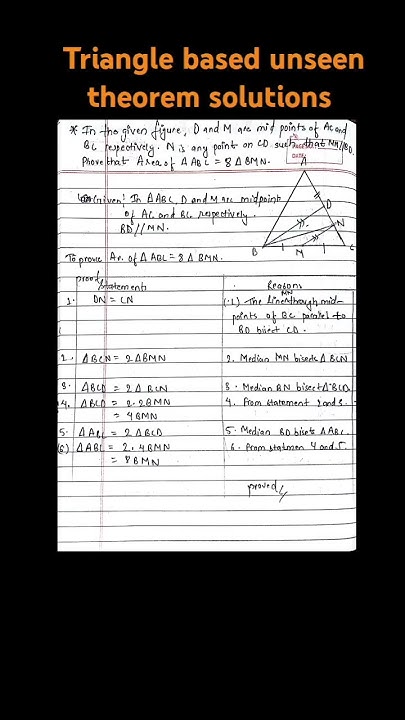 Triangle based unseen
theorem solutions
* In the given figure, D and M are mid points of AC and
BC respectively. N is any point on CD such that MN//BD.
Prove that Area of Δ ABC = 8 Δ BMN.
A
D
N
B
M
C
Given: In Δ ABC, D and M are midpoint
of AC and BC respectively.
BD // MN.
To prove Ar. of Δ ABC = 8 Δ BMN.
proof
Statements
Reasons
1. DN = CN
(1) The line MN through mid-
points of BC parallel to
BD bisect CD.
2. Δ BCN = 2 Δ BMN
2. Median MN bisects Δ BCN
3. Δ BCD = 2 Δ BCN
3. Median BN bisect Δ BCD.
4. Δ BCD = 2.2 BMN
4. From statement 2 and 3.
= 4 BMN
5. Δ ABC = 2 Δ BCD
5. Median BD bisets Δ ABC.
(6) Δ ABC = 2.4 BMN
6. From statmen 4 and 5.
= 8 BMN
proved